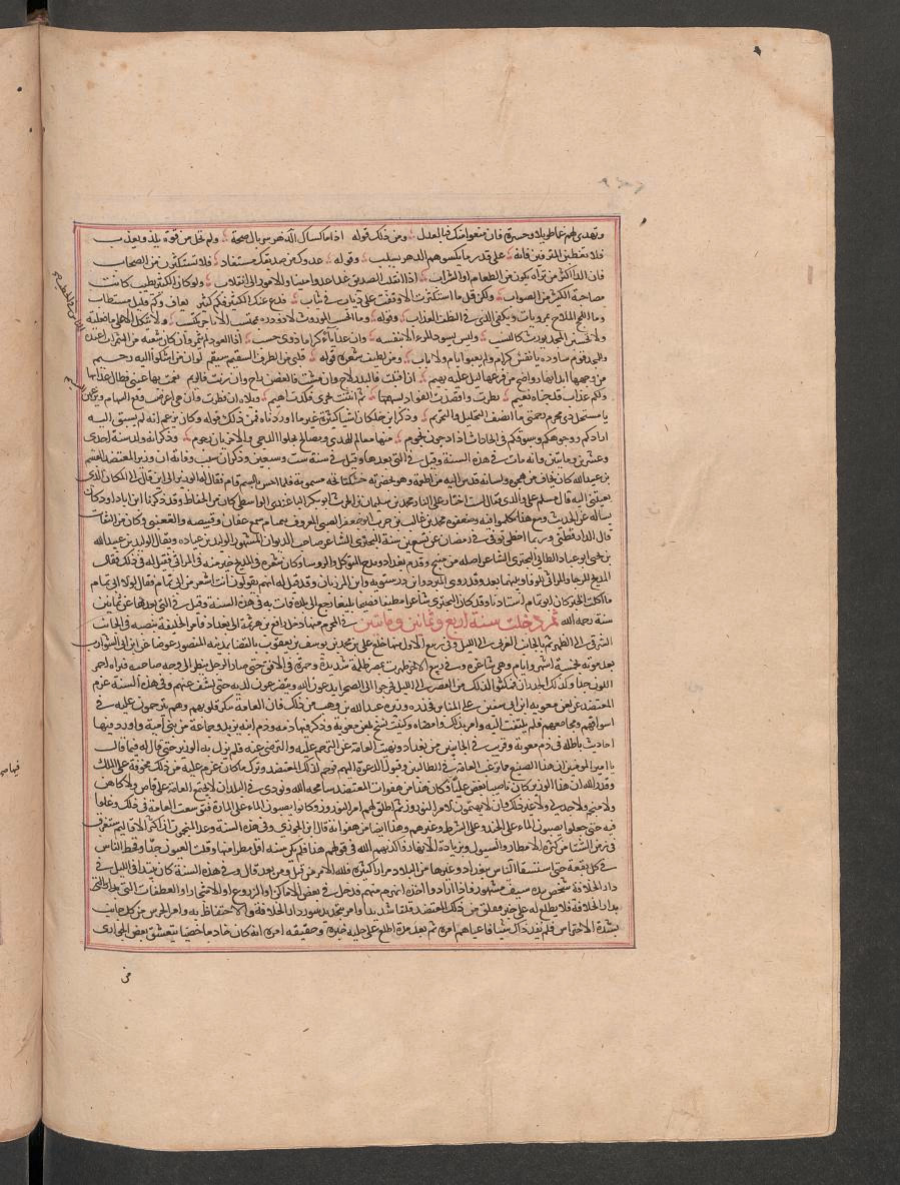 وتهدى لهم عاطوبلا وحسرة فان منعوا منك فبالعدل ومن ذلك قوله اذا ما كساك الدهر سربال صحة ولم تخل من قوة يلذ ويعذب
فلا تغبطن المترفين فانه على قدر ما يكسوهم الدهر يسلب وقوله عدوك من صديقك مستفاد فلا تستكثرن من الصحاب
فان الداء اكثر ما تراه يكون من الطعام او الشراب اذا انقلب الصديق غدا عدوا مبينا والامور الى انقلاب ولو كان الكثير يطيب كانت
مصاحبة الكثير من الصواب ولكن قل ما استكثرت الا وقعت على ذياب في ثياب فدع عنك الكثير فكم كثير يعاف وكم قليل مستطاب
وما اللجج الملاح بمرويات ويكفى الري في النطف العذاب وقوله وما الحسب الموروث لا در دره بمحتسب الا باخر مكتسب ولا تتكل الا على ما فعلته
ولا تحسبن المجد يورث كالنسب وليس يسود المرء الا بنفسه وان عد اباء كراما ذوى حسب اذا العود لم يثمر وان كان شعبة من المثمرات اعتده
وللمجد قوم ساودوه بانفس كرام ولم يعبوا بام ولا باب ومن لطيف شعره قوله قلبي من الطرف السقيم سقيم لو ان من اشكو اليه رحيم
من وجهها ابدا نهار واضح من فرعها ليل عليه بهيم ان اقبلت فالبدر لاح وان مشت فالغصن راح وان رنت فالريم نعمت بها عيني فطال عذابها
ولكم عذاب قد جناه نعيم نظرت فاقصدت الفواد بسهمها ثم انثنت نحوى فكدت اهيم ويلاه ان نظرت وان هي اعرضت وقع السهام ونزعهن
يا مستحل دمي محرم رحمتي ما انصف التحليل والتحريم وذكر ابن خلكان اشيا كثيرة غير ما اوردناه فمن ذلك قوله وكان يزعم انه لم يسبق اليه
اراوكم ووجوهكم وسيوفكم في الحادثات اذا دجون نجوم منها معالم للهدى ومصابح تجلو الدجى والاخريات رجوم وذكر انه ولد سنة احدى
وعشرين ومايتين وانه مات في هذه السنة وقيل في التي بعدها وقيل في سنة ست وسبعين وذكر ان سبب وفاته ان وزير المعتضد القاسم
بن عبيد الله كان يخاف من هجوه ولسانه فدس اليه من اطعمه وهو بحضرته خشكنانجه مسمومة فلما احس بالسم قام فقال له الوزير الى اين قال الى المكان الذي
بعثتني اليه قال سلم على والدى فقال لست اختار على النار محمد بن سليمان بن الحرث ابو بكر الباغندى الواسطى كان من الحفاظ وقد ذكر ان ابا داود كان
يساله عن الحديث ومع هذا تكلموا فيه وضعفوه محمد بن غالب بن حرب ابو جعفر الضبي المعروف بتمتام سمع عفان وقبيصه والقعنبي وكان من الثقات
قال الدارقطنى وربما اخطى توفى في رمضان عن تسعين سنة البحترى الشاعر صاحب الديوان المشهور الوليد بن عباده ويقال الوليد بن عبيد الله
بن يحيى ابو عباد الطائي البحترى الشاعر اصله من منبج وقدم بغداد ومدح المتوكل والروسا وكان شعره في المديح خير منه في المراثى فقيل له في ذلك فقال
المديح للرجا والمراثى للوفا وبينهما بعد وقد روى عنه المبرد وابن درستويه وابن المرزبان وقد قيل له انهم يقولون انت اشعر من ابي تمام فقال لا لولا ابي تمام
ما اكلت الخبز كان ابو تمام استادنا وقد كان البحترى شاعرا مطبقا فصيحا بليغا رجع الى بلده فمات به في هذه السنة وقيل في التي بعدها عن ثمانين
سنة رحمه الله ثم دخلت سنة اربع وثمانين ومايتين في المحرم منها دخل رافع بن هرثمة الى بغداد فامر الخليفة بنصبه في الجانب
الشرقي الى الظهر ثم بالجانب الغربي الى الليل وفي ربيع الاول منها خلع على محمد بن يوسف بن يعقوب بالقضا بمدينة المنصور عوضا عن ابن ابي الشوارب
بعد موته بخمسة اشهر وايام وهي شاغره وفي ربيع الاخر ظهرت بمصر ظلمة شديدة وحمرة في الافق حتى صار الرجل ينظر الى وجه صاحبه فيراه احمر
اللون جدا وكذلك الجدران فمكثوا لذلك من العصر الى الليل فخرجوا الى الصحرا يدعون الله ويتضرعون لديه حتى كشف عنهم وفي هذه السنة عزم
المعتضد على لعن معوية ابن ابي سفين على المنابر فحذره وزيره عبد الله بن وهب من ذلك فان العامة تنكر قلوبهم وهم يترحمون عليه في
اسواقهم ومجامعهم فلم يلتفت اليه وامر بذلك وامضاه وكتبت نسخ بلعن معوية وذكر فيها ذمه وذم ابنه يزيد وجماعة من بني امية واورد فيها
احاديث باطله في ذم معوية وقريت في الجانبين من بغداد ونهيت العامة عن الترحم عليه والترضي عنه فلم يزل به الوزير حتى قال له فيما قال
يا امير المومنين ان هذا الصنيع مما يرغب العامة في الطالبين وقبول الدعوة اليهم فوجم لذلك المعتضد وترك ما كان عزم عليه من ذلك تخوفة على الملك
وقدر الله ان هذا الوزير كان ناصبيا يبغض عليا فكان هذا من هفوات المعتضد سامحه الله ونودى في البلدان لا يجتمع العامة على قاص ولا كاهن
ولا منجم ولا جدلي ولا غير ذلك وان لا يهتموا لامر النيروز ثم اطلق لهم امر النيروز وكانوا يصبون الماء على المارة فتوسعت العامة في ذلك وغلوا
فيه حتى جعلوا يصبون الماء على الجند وعلى الشرط وغيرهم وهذا ايضا من هفواته قال ابن الجوزى وفي هذه السنة وعد المنجمون ان اكثر الاقاليم ستغرق
في زمن الشتا من كثرة الامطار والسيول وزيادة الانهار فاكذبهم الله في قولهم هذا فلم يكن سنه اقل مطرا منها وقلت العيون جدا وقحط الناس
في كل بقعة حتى استسقا الناس ببغداد وغيرها من البلاد مرارا كثيرة فلله الامر من قبل ومن بعد قال وفي هذه السنة كان يتبدا في الليل في
دار الخلافة شخص بيده سيف مشهور فاذا ارادوا اخذه انهزم منهم فدخل في بعض الاماكن او الزروع او الاشجار او العطفات التي بدار
بدار الخلافة فلا يطلع له على خبر فقلق من ذلك المعتضد قلقا شديدا وامر بتجديد سور دار الخلافة والاحتفاظ به وامر الحرس من كل جانب
بشدة الاحتراس فلم يفد ذاك شيا فاعياهم امره ثم بعد مدة اطلع على جلية خبره وحقيقة امره انه كان خادما خصيا يتعشق بعض الجوارى
من